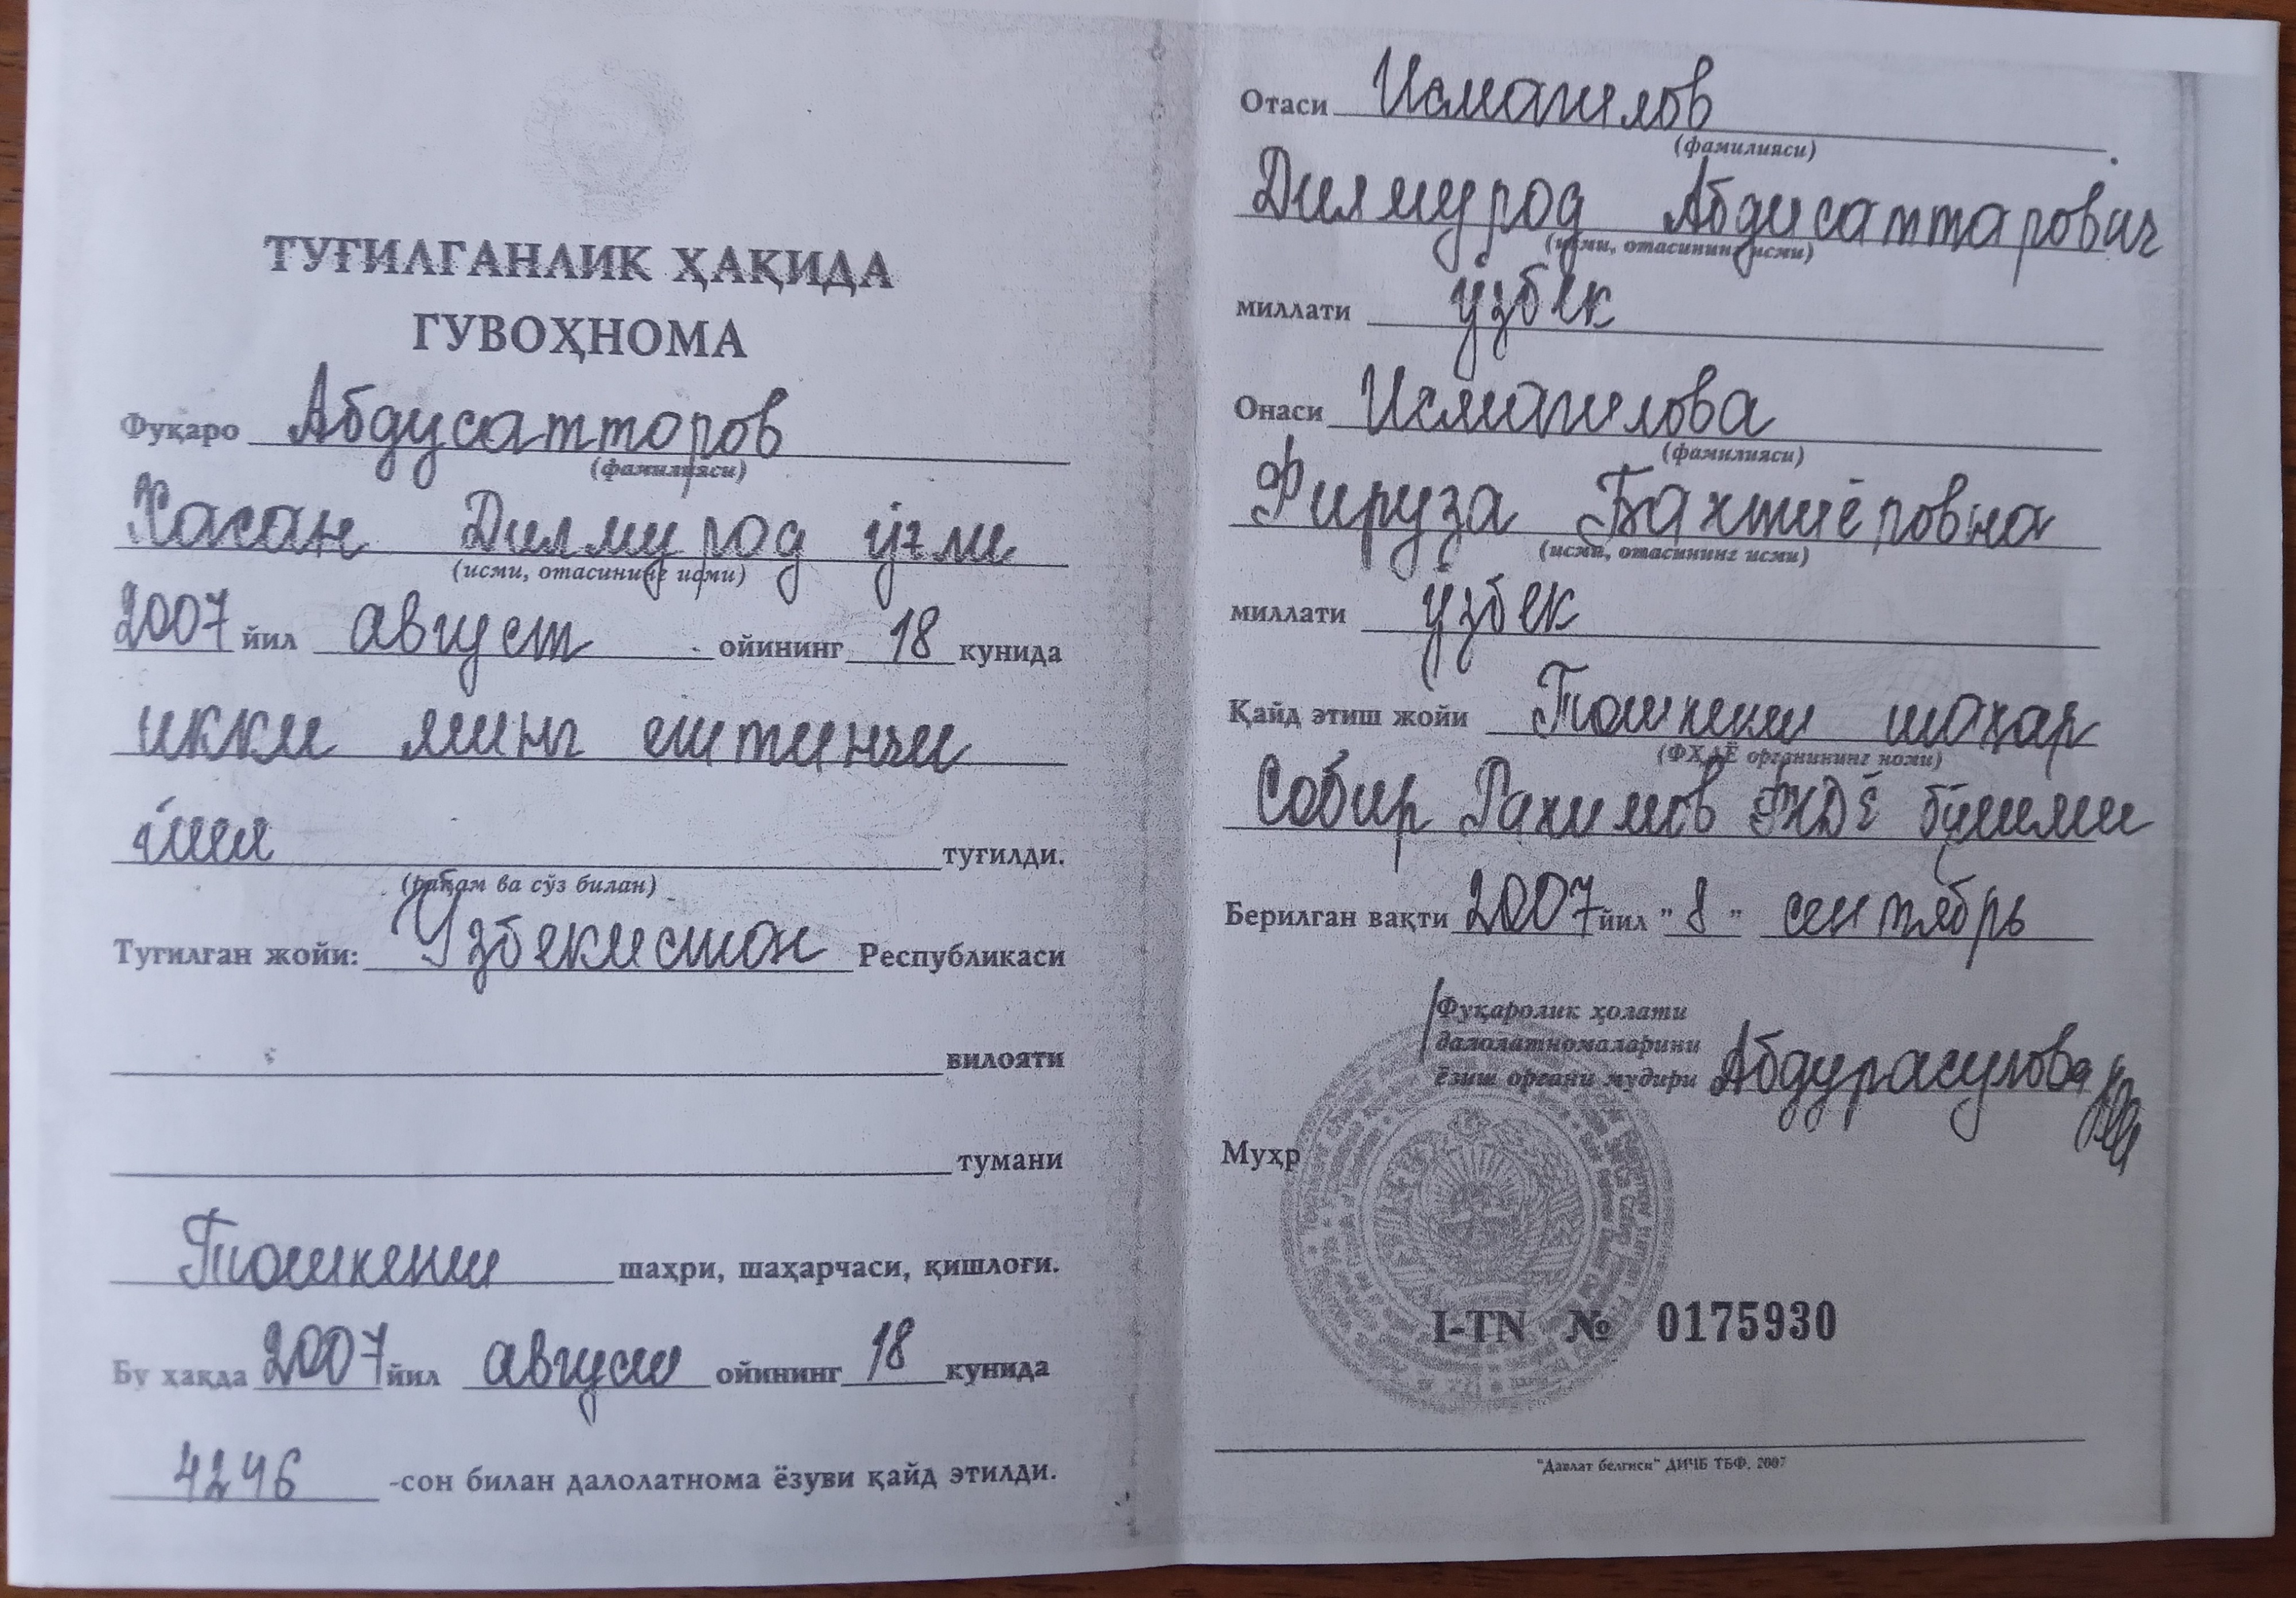 ТУҒИЛГАНЛИК ҲАҚИДА
ГУВОҲНОМА
Фуқаро Абдусатторов
(фамилияси)
Хасан Дилмурод ўғли
(исми, отасининг исми)
2007 йил август ойининг 18 кунида
икки минг еттинчи
йил туғилди.
(рақам ва сўз билан)
Туғилган жойи: Ўзбекистон Республикаси
вилояти
тумани
Тошкент шаҳри, шаҳарчаси, қишлоғи.
Бу ҳақда 2007 йил август ойининг 18 кунида
4246 -сон билан далолатнома ёзуви қайд этилди.
Отаси Исмаилов
(фамилияси)
Дилмурод Абдисаттарович
(исми, отасининг исми)
миллати ўзбек
Онаси Исмаилова
(фамилияси)
Фируза Бахтиёровна
(исми, отасининг исми)
миллати ўзбек
Қайд этиш жойи Тошкент шаҳар
(ФҲДЁ органининг номи)
Собир Рахимов ФХДЁ бўлими
Берилган вақти 2007 йил "8" сентябрь
Фуқаролик ҳолати
далолатномаларини
ёзиш органи мудири Абдурасулова
Муҳр
I-TN № 0175930
"Давлат белгиси" ДИЧБ ТБФ, 2007